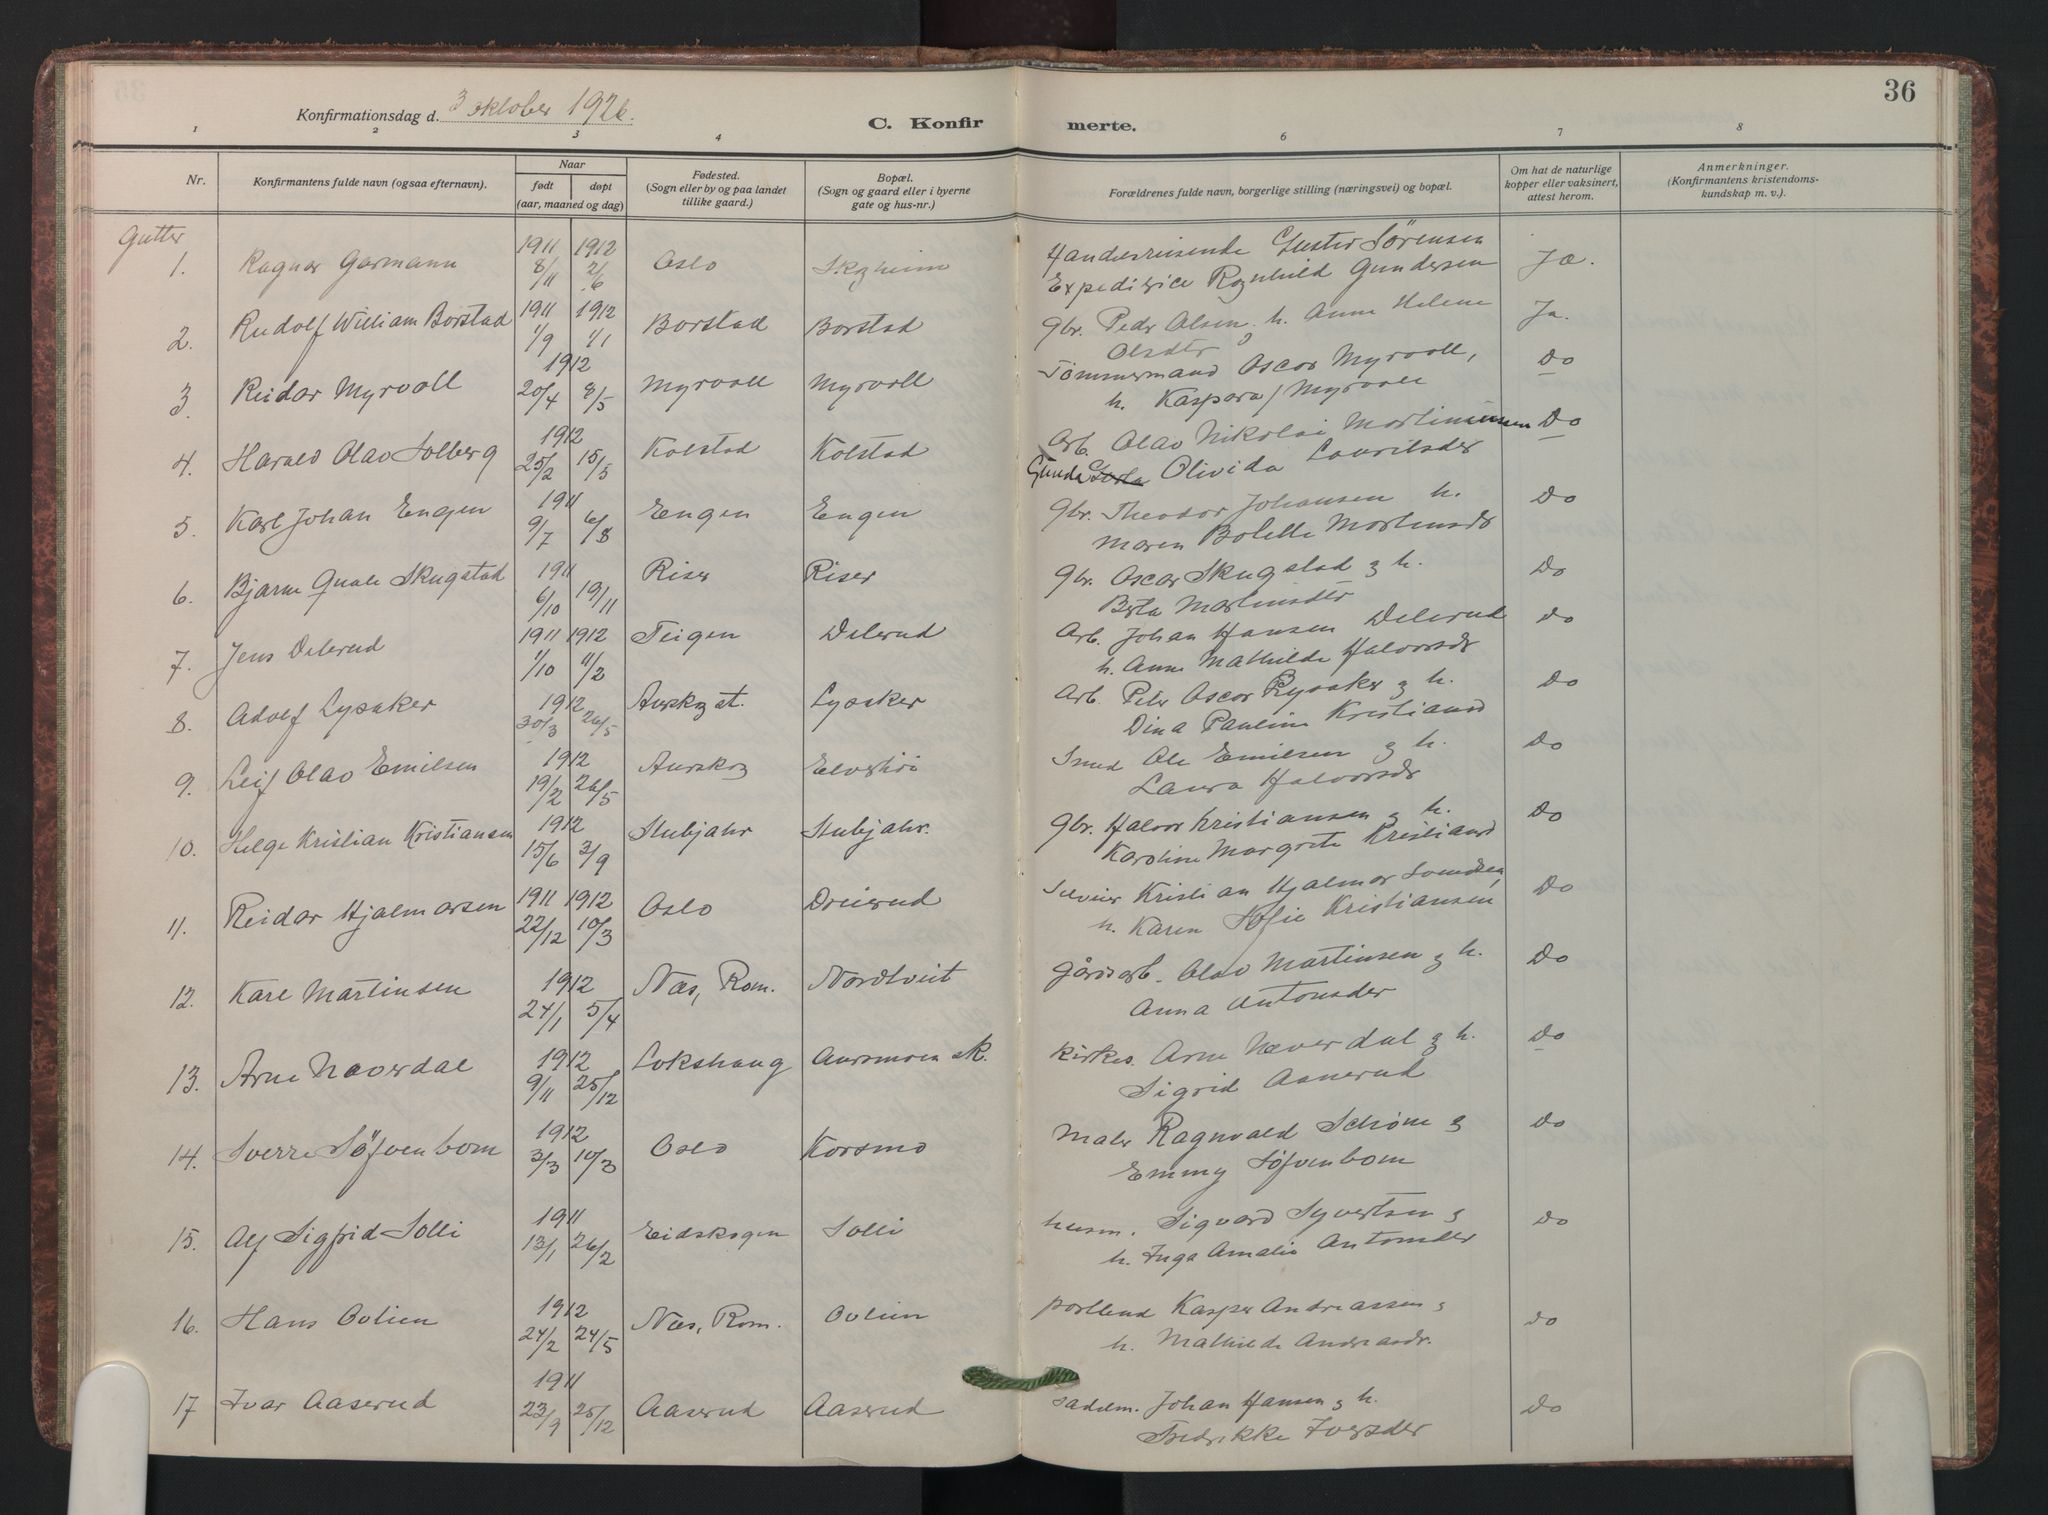 36
Konfirmationsdag d. 3 oktober 1926.
C. Konfir merte.
1 2 3 4 5 6 7 8
Nr.
Konfirmantens fulde navn (ogsaa efternavn).
Naar
født døpt
(aar, maaned og dag)
Fødested.
(Sogn eller by og paa landet
tillike gaard.)
Bopæl.
(Sogn og gaard eller i byerne
gate og hus-nr.)
Forældrenes fulde navn, borgerlige stilling (næringsvei) og bopæl.
Om hat de naturlige
kopper eller vaksinert,
attest herom.
Anmerkninger.
(Konfirmantens kristendoms-
kundskap m. v.).
Gutter
1. Ragnar Garmann 1911 8/11 1912 2/6 Oslo Skogheim
Gustav Sörensen
Ragnhild Gundersen Ja.
2. Rudolf William Borstad 1911 1/9 1912 1/1 Borstad Borstad
gbr. Peder Olsen h. Anne Helene Ja.
Olsdtr
3. Reidar Myrvoll 1912 20/4 8/5 Myrvoll Myrvoll
Tömmermand Oscar Myrvoll, Do
h. Kaspara / Myrvoll
4. Harald Olav Solberg 1912 25/2 15/5 Kolstad Kolstad
Arb. Olav Nikolai Martinusen Do
Gunda Olivida Lauritsdtr
5. Karl Johan Engen 1911 9/7 6/8 Engen Engen
gbr. Theodor Johansen h. Do
Maren Bolette Martinsdtr
6. Bjarne Quale Skugstad 1911 6/10 19/11 Riser Riser
gbr. Oscar Skugstad og h. Do
Berta Martinsdtr
7. Jens Delerud 1911 1/10 1912 11/2 Teigen Delerud
Arb. Johan Hansen Delerud Do
h. Anne Mathilde Halvorsdtr
8. Adolf Lysaker 1912 30/3 26/5 Aurskog st. Lysaker
Arb. Peter Oscar Rysaker og h. Do
Dina Pauline Kristiansd
9. Leif Olav Emilsen 1912 19/2 26/5 Aurskog Elvehöi
Smed Ole Emilsen og h. Do
Laura Halvorsdtr
10. Helge Kristian Kristiansen 1912 15/6 3/9 Stubjahr Stubjahr.
gbr. Halvor Kristiansen og h. Do
Karoline Margrete Kristiansd
11. Reidar Hjalmarsen 1911 22/12 1912 10/3 Oslo Dreierud
Kristian Hjalmar Svendsen, Do
h. Karen Sofie Kristiansen
12. Kåre Martinsen 1912 24/1 5/4 Næs, Rom. Nordtveit
Gårdsarb. Olav Martinsen og h. Do
Anna Antonsder
13. Arne Næverdal 1912 9/11 25/12 Lokshaug Aursmoen sk.
Kirkes. Arne Næverdal og h. Do
Sigrid Aanerud
14. Sverre Söfvenbom 1912 3/3 10/3 Oslo Korsmo
Maler Ragnvald Schöne og Do
Emmy Söfvenbom
15. Alf Sigfrid Solli 1911 13/1 26/2 Eidskogen Solli
husm. Sigvard Syvertsen og Do
h. Inga Amalie Antonsder
16. Hans Oolien 1912 24/2 24/5 Næs, Rom. Oolien
Kasper Andreassen og Do
h. Mathilde Andreasdr.
17 Ivar Aaserud 1911 23/9 25/12 Aaserud Aaserud
sadelm. Johan Hansen og h. Do
Fredrikke Iversder